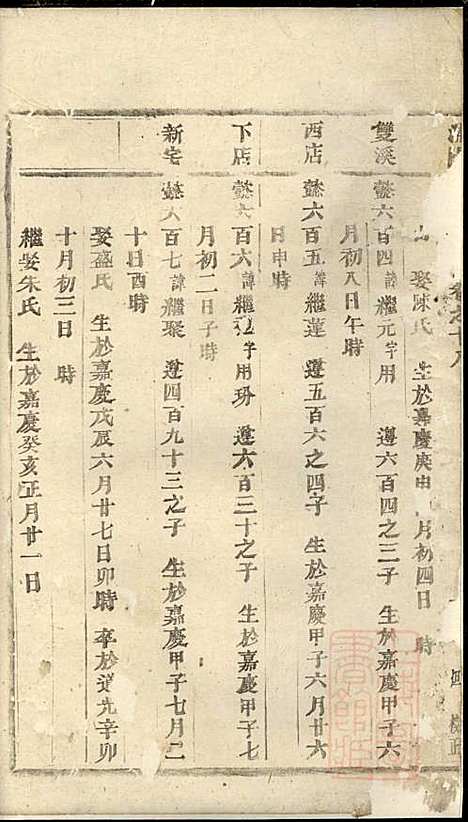 娶陳氏 生於嘉慶庚申 月初四日 時
雙溪 懿六百四 諱繼元字用 遵六百四之三子 生於嘉慶甲子六
月初八日午時
西店 懿六百五 諱繼蓮 遵五百六之四子 生於嘉慶甲子六月廿六
日申時
下店 懿六百六 諱繼 字用玬 遵六百三十之子 生於嘉慶甲子七
月初二日子時
新宅 懿六百七 諱繼聚 遵四百九十三之子 生於嘉慶甲子七月二
十日酉時
娶盛氏 生於嘉慶戊辰六月廿七日卯時 卒於道光辛卯
十月初三日 時
繼娶朱氏 生於嘉慶癸亥正月廿一日